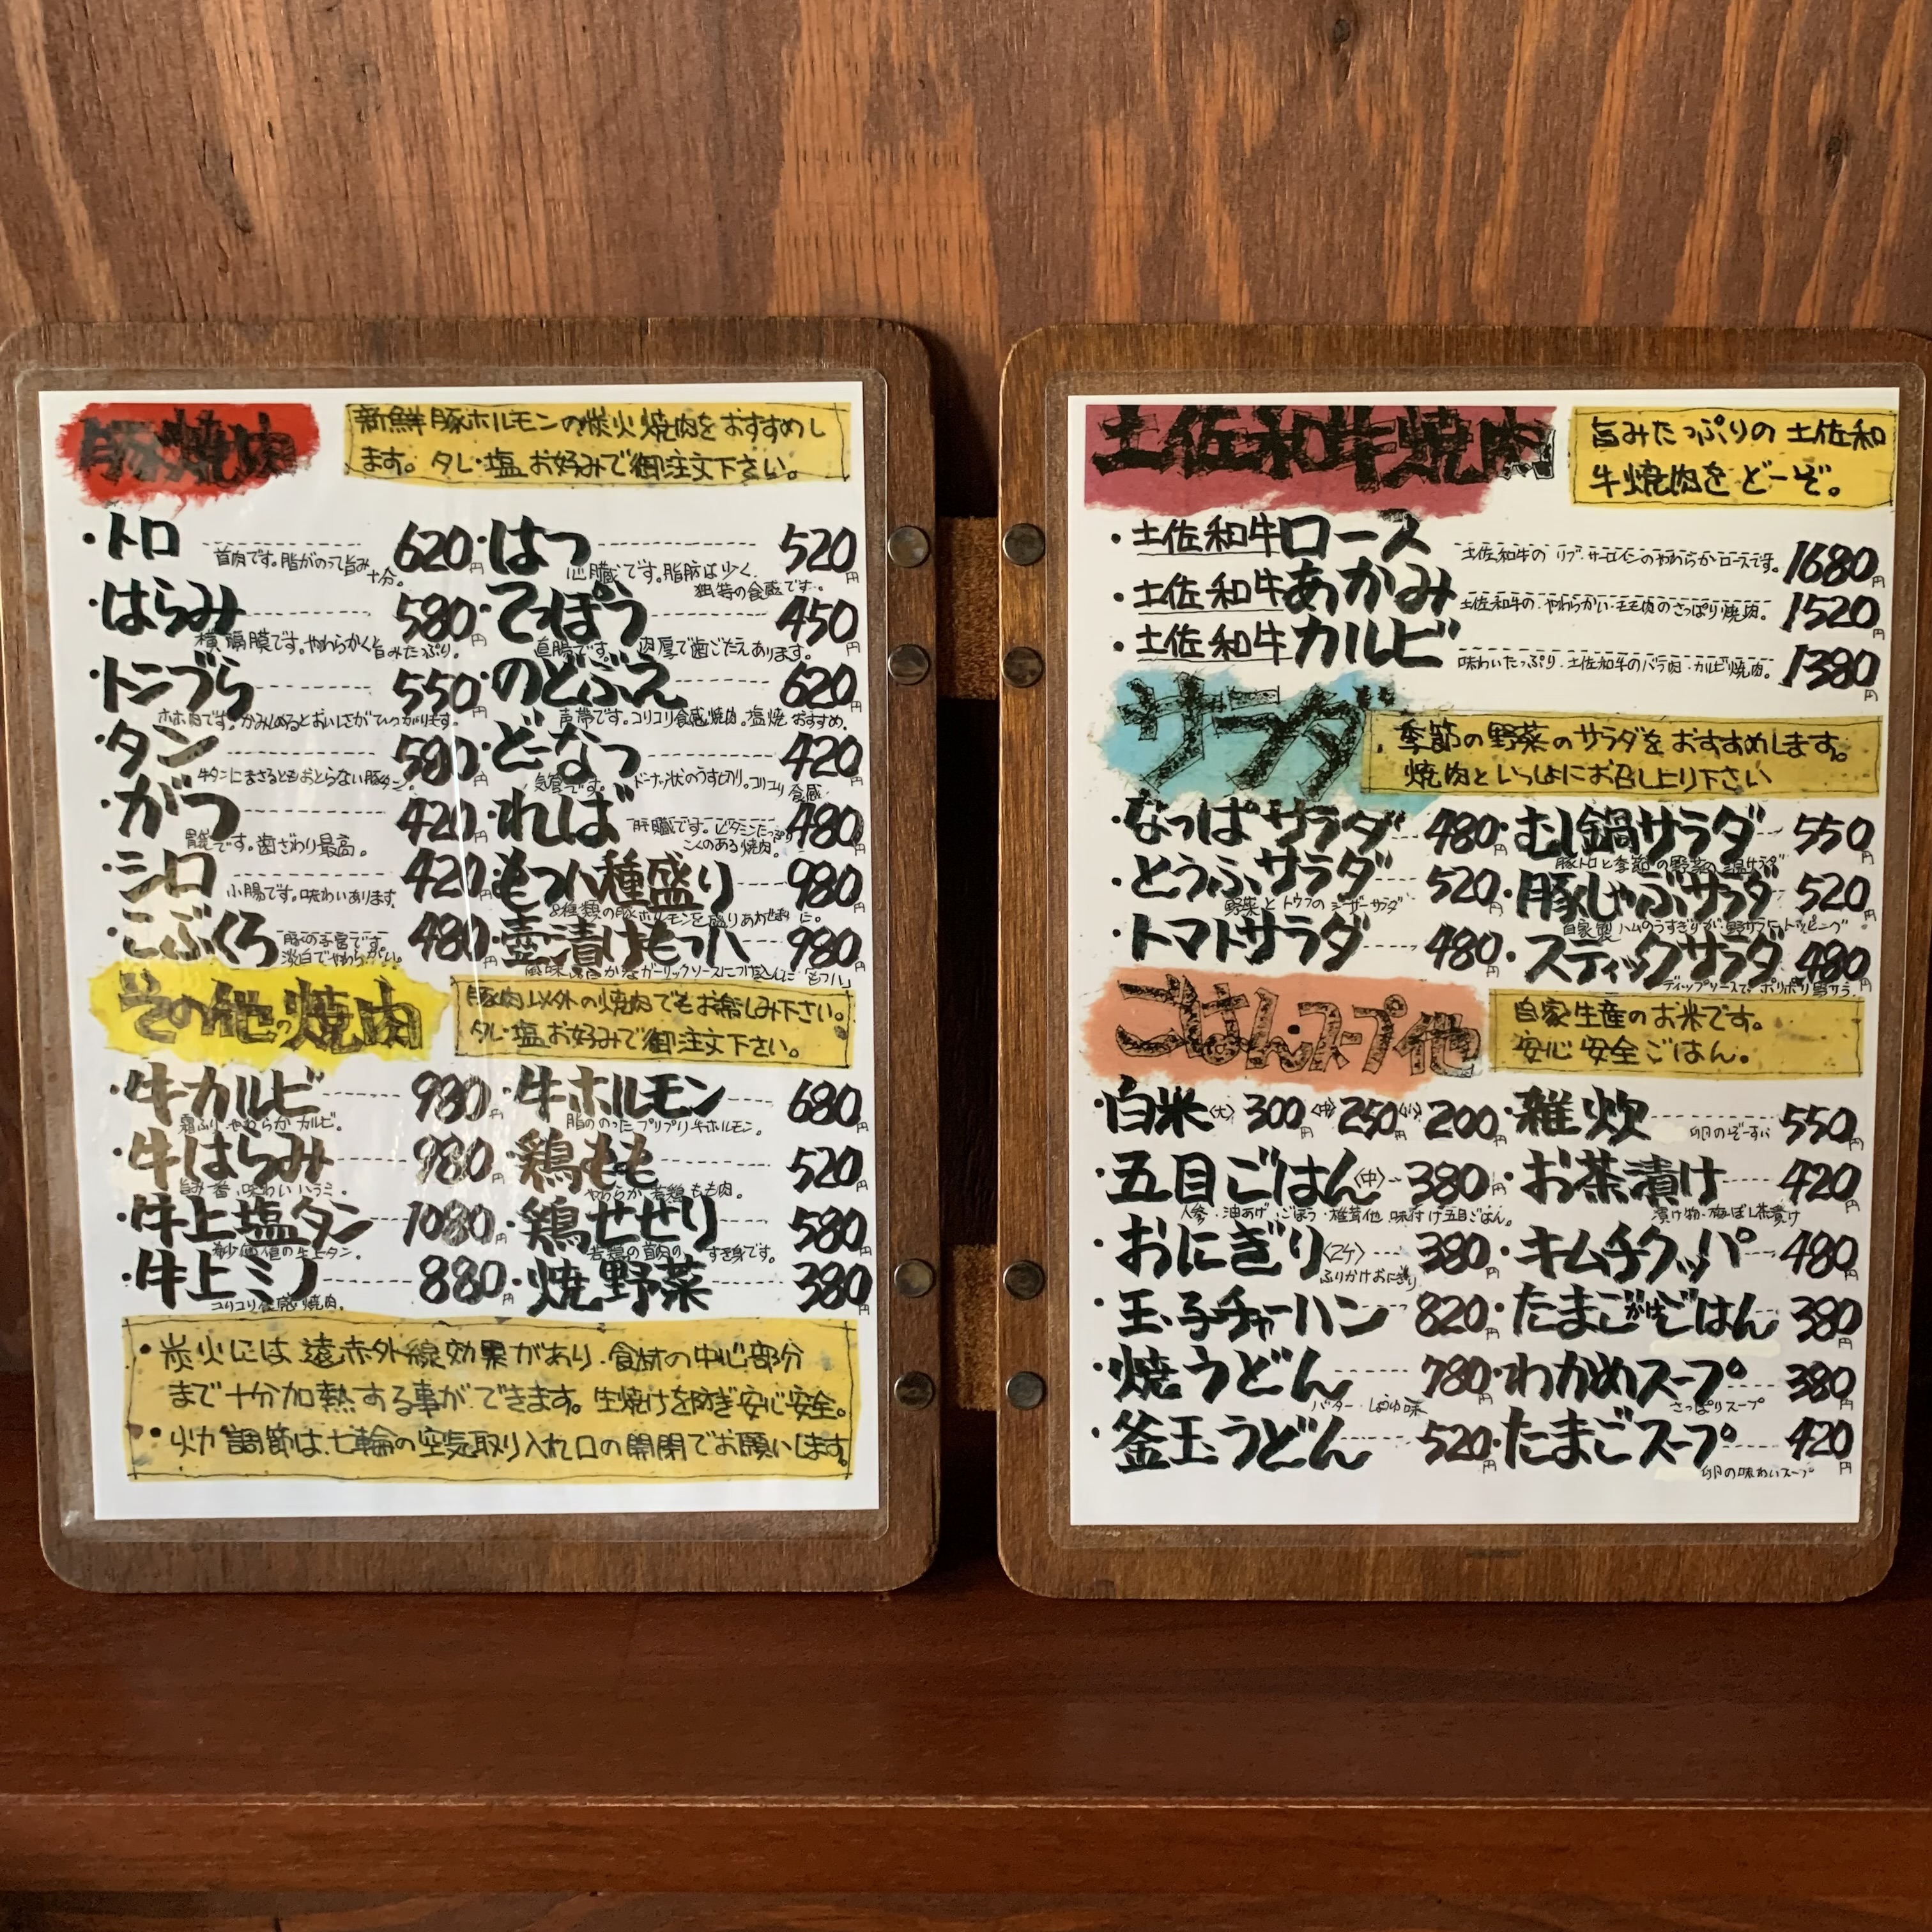 豚焼肉
新鮮豚ホルモンの炭火焼肉をおすすめし
ます。タレ・塩お好みで御注文下さい。
・トロ 620円
首肉です。脂がのって旨み
十分。
・はらみ 580円
横隔膜です。やわらかく旨みたっぷり。
・トンづら 550円
ホホ肉です。かみしめるとおいしさがひろがります。
・タン 580円
牛タンにまさるともおとらない豚タン。
・がつ 420円
胃袋です。歯ざわり最高。
・シロ 420円
小腸です。味わいあります。
・こぶくろ 480円
豚の子宮です。
淡白でやわらかい。
・はつ 520円
心臓です。脂肪は少く、
独特の食感です。
・てっぽう 450円
直腸です。肉厚で歯ごたえあります。
・のどぶえ 620円
声帯です。コリコリ食感焼肉。塩焼おすすめ。
・どーなつ 420円
気管です。ドーナッツ状のうすぎり。コリコリ食感
・ればー 480円
肝臓です。ビタミンたっぷり
こくのある焼肉。
・もつ八種盛り 980円
8種類の豚ホルモンを盛りあわせに。
・壺漬けもつ八 980円
その他の焼肉
豚肉以外の焼肉でもお楽しみ下さい。
タレ・塩お好みで御注文下さい。
・牛カルビ 980円
霜ふりやわらかカルビ。
・牛はらみ 980円
旨み一番、味わいハラミ。
・牛上塩タン 1080円
・牛上ミノ 880円
コリコリ食感焼肉。
・牛ホルモン 680円
脂ののったプリプリ牛ホルモン。
・鶏もも 520円
やわらか若鶏もも肉。
・鶏せせり 580円
若鶏の首肉のすき身です。
・焼野菜 380円
・炭火には遠赤外線効果があり、食材の中心部分
まで十分加熱する事ができます。生焼けを防ぎ安心安全。
・火力調節は、七輪の空気取り入れ口の開閉でお願いします。
土佐和牛焼肉
旨みたっぷりの土佐和
牛焼肉をどーぞ。
・土佐和牛ロース 1680円
土佐和牛のリブ・サーロインのやわらかロースです。
・土佐和牛あかみ 1520円
土佐和牛の、やわらかい・モモ肉のさっぱり焼肉。
・土佐和牛カルビ 1380円
味わいたっぷり・土佐和牛のバラ肉・カルビ焼肉。
サラダ
季節の野菜のサラダをおすすめします。
焼肉といっしょにお召し上り下さい
・なっぱサラダ 480円
・とうふサラダ 520円
野菜とトウフのシーザーサラダ
・トマトサラダ 480円
・むし鍋サラダ 550円
豚トロと季節の野菜の温サラダ
・豚しゃぶサラダ 520円
・スティックサラダ 480円
ごはん・スープ他
自家生産のお米です。
安心安全ごはん。
・白米〈大〉300円〈中〉250円〈小〉200円
・五目ごはん〈中〉380円
人参・油あげ・ごぼう・椎茸他 味付け五目ごはん。
・おにぎり〈2ケ〉380円
ふりかけおにぎり
・玉子チャーハン 820円
・焼うどん 780円
バター・しょうゆ味
・釜玉うどん 520円
・雑炊 550円
卵のぞーすい
・お茶漬け 420円
漬け物・梅ぼし茶漬け
・キムチクッパ 480円
・たまごがけごはん 380円
・わかめスープ 380円
さっぱりスープ
・たまごスープ 420円
卵の味わいスープ